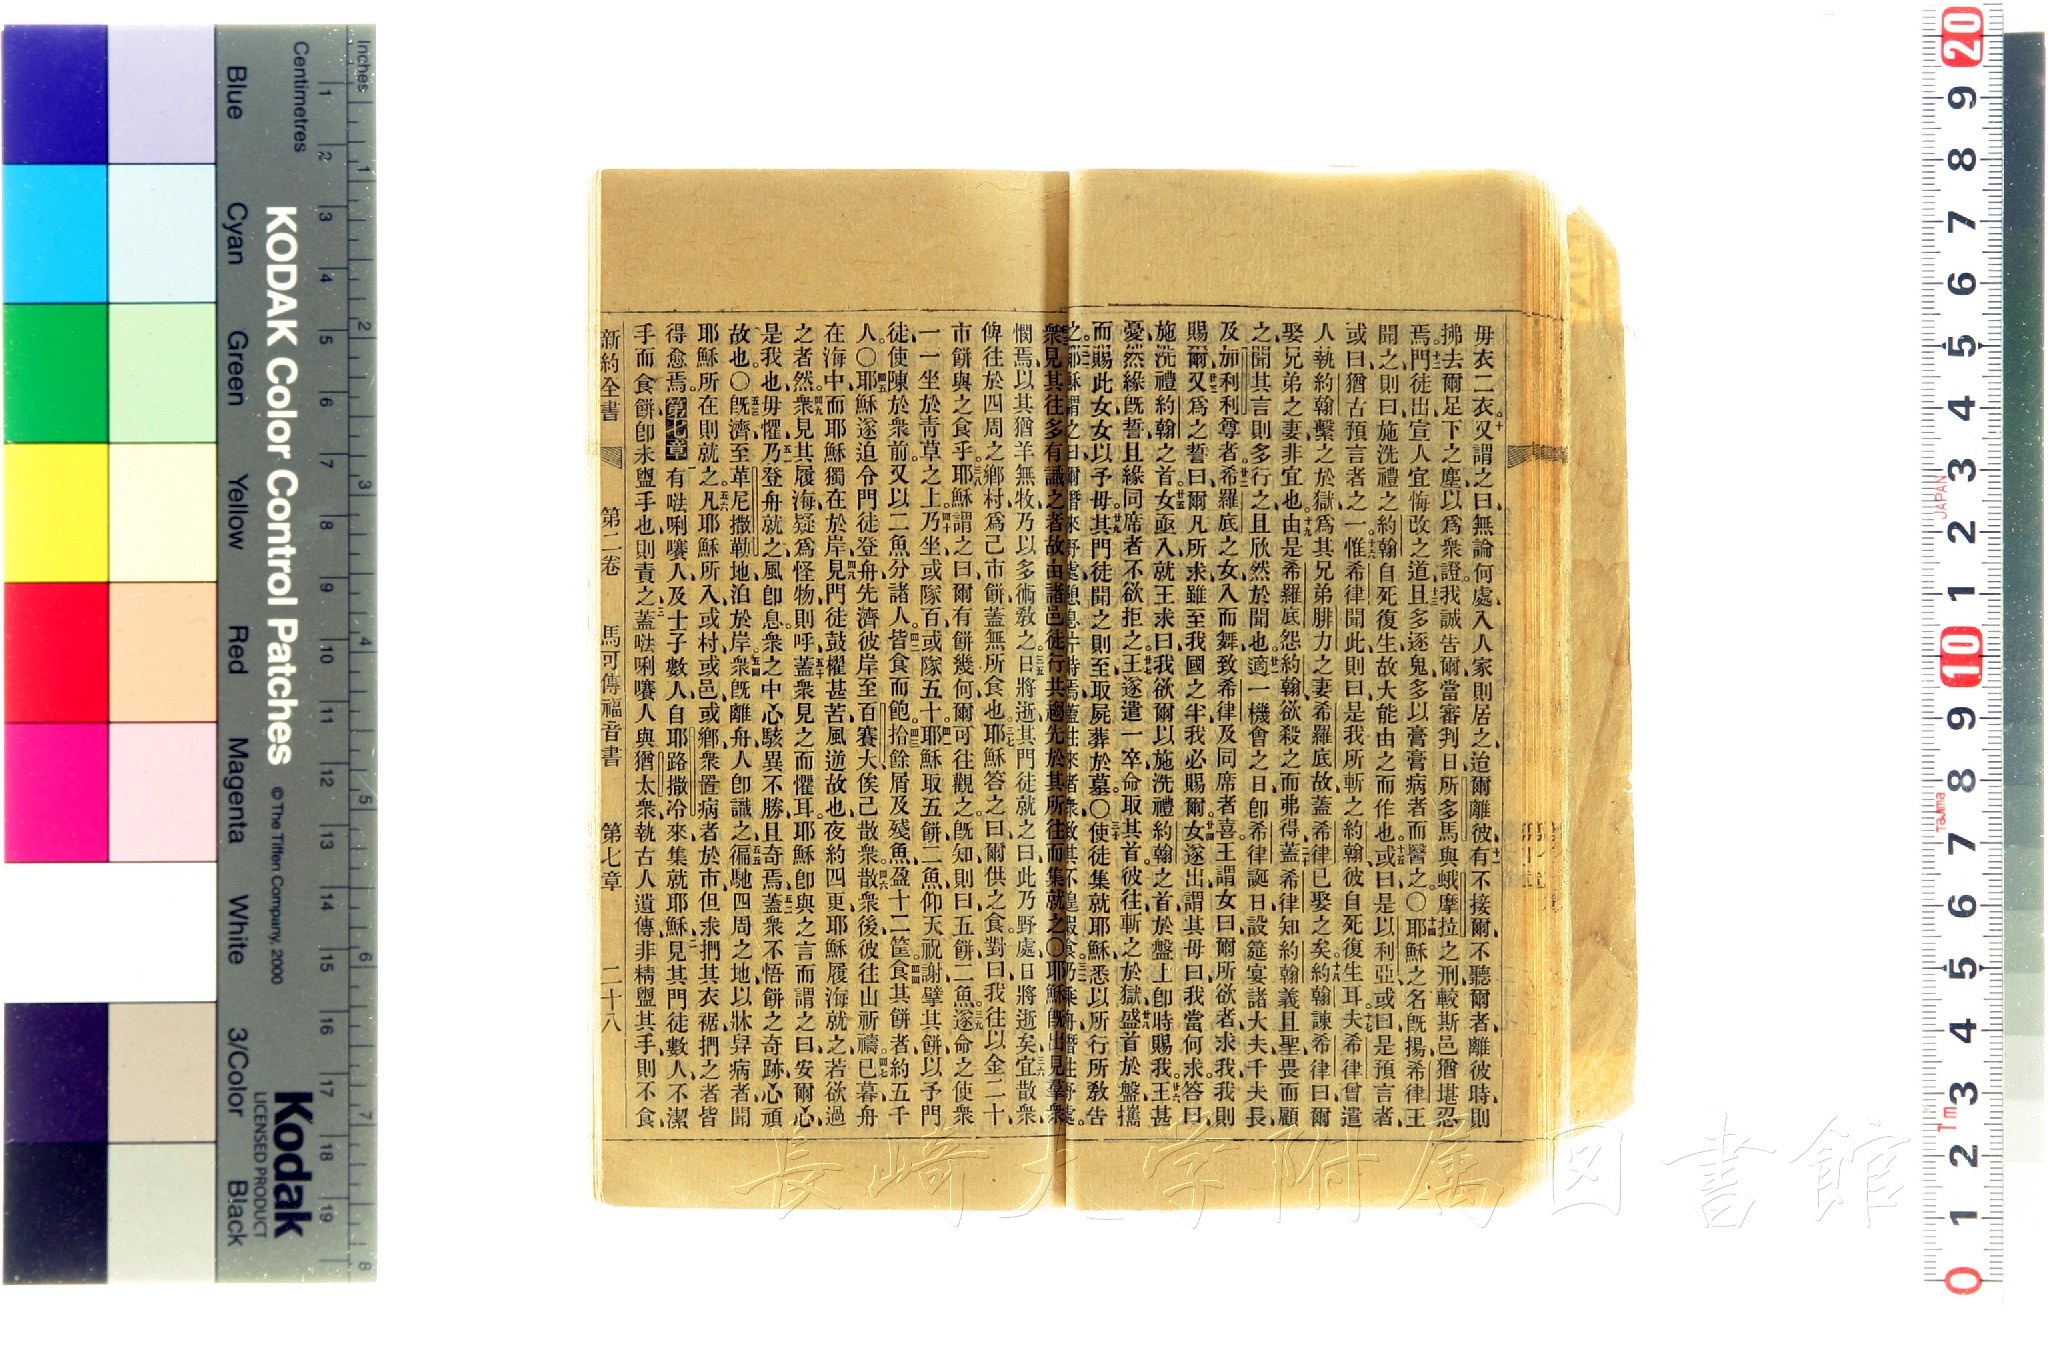 毋衣二衣又謂之曰無論何處入人家則居之迨爾離彼有不接爾不聽爾者離彼時則
拂去爾足下之塵以爲衆證我誠告爾當審判日所多馬與蛾摩拉之刑較斯邑猶堪忍
焉門徒出宣人宜悔改之道且多逐鬼多以膏膏病者而醫之〇耶穌之名旣揚希律王
聞之則曰施洗禮之約翰自死復生故大能由之而作也或曰是以利亞或曰是預言者
或曰猶古預言者之一惟希律聞此則曰是我所斬之約翰彼自死復生耳夫希律曾遣
人執約翰繫之於獄爲其兄弟腓力之妻希羅底故蓋希律已娶之矣約翰諫希律曰爾
娶兄弟之妻非宜也由是希羅底怨約翰欲殺之而弗得蓋希律知約翰義且聖畏而顧
之聞其言則多行之且欣然於聞也適一機會之日卽希律誕日設筵宴諸大夫千夫長
及加利利尊者希羅底之女入而舞致希律及同席者喜王謂女曰爾所欲者求我我則
賜爾又爲之誓曰爾凡所求雖至我國之半我必賜爾女遂出謂其毋曰我當何求答曰
施洗禮約翰之首女亟入就王求曰我欲爾以施洗禮約翰之首於盤上卽時賜我王甚
憂然緣旣誓且緣同席者不欲拒之王遂遣一卒命取其首彼往斬之於獄盛首於盤攜
而賜此女女以予毋其門徒聞之則至取屍葬於墓〇使徒集就耶穌悉以所行所敎告
之耶穌謂之曰爾暫來野處憩息片時焉蓋往來者衆致其不遑暇食乃乘舟暫往野處
衆見其往多有識之者故由諸邑徒行共趨先於其所往而集就之〇耶穌旣出見羣衆
憫焉以其猶羊無牧乃以多術敎之日將逝其門徒就之曰此乃野處日將逝矣宜散衆
俾往於四周之鄉村爲己市餅蓋無所食也耶穌答之曰爾供之食對曰我往以金二十
市餅與之食乎耶穌謂之曰爾有餅幾何爾可往觀之旣知則曰五餅二魚遂命之使衆
一一坐於靑草之上乃坐或隊百或隊五十耶穌取五餅二魚仰天祝謝擘其餅以予門
徒使陳於衆前又以二魚分諸人皆食而飽拾餘屑及殘魚盈十二筐食其餅者約五千
人〇耶穌遂迫令門徒登舟先濟彼岸至百賽大俟己散衆散衆後彼往山祈禱已暮舟
在海中而耶穌獨在於岸見門徒鼓櫂甚苦風逆故也夜約四更耶穌履海就之若欲過
之者然衆見其履海疑爲怪物則呼蓋衆見之而懼耳耶穌卽與之言而謂之曰安爾心
是我也毋懼乃登舟就之風卽息衆之中心駭異不勝且奇焉蓋衆不悟餅之奇跡心頑
故也〇旣濟至革尼撒勒地泊於岸衆旣離舟人卽識之徧馳四周之地以牀舁病者聞
耶穌所在則就之凡耶穌所入或村或邑或鄉衆置病者於市但求捫其衣裾捫之者皆
得愈焉第七章有𠵽唎嚷人及士子數人自耶路撒冷來集就耶穌見其門徒數人不潔
手而食餅卽未盥手也則責之蓋𠵽唎嚷人與猶太衆執古人遺傳非精盥其手則不食
新約全書 第二卷 馬可傳福音書 第七章 二十八
Inches
Centimetres
KODAK Color Control Patches © The Tiffen Company, 2000
Kodak
LICENSED PRODUCT
Blue Cyan Green Yellow Red Magenta White 3/Color Black
長崎大学附属図書館
JAPAN
Tajima
Tm